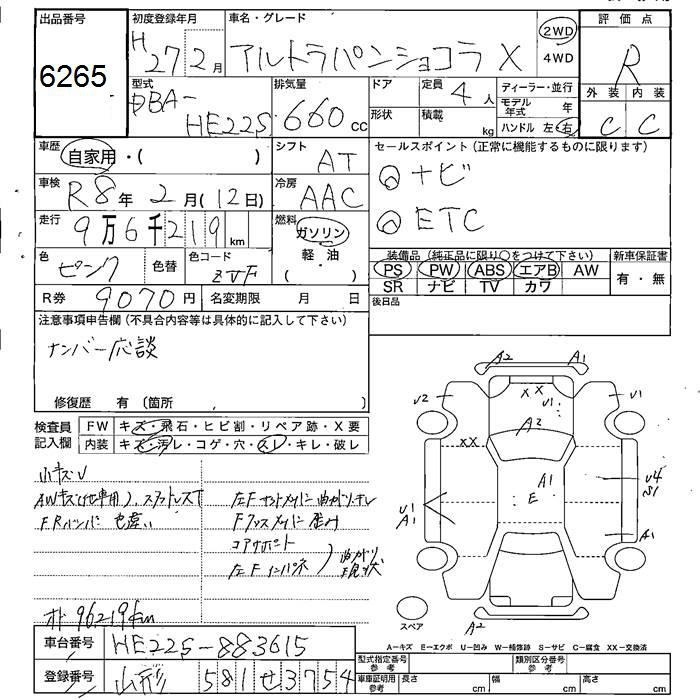 出品番号
6265
初度登録年月
H 27 2月
車名・グレード
アルトラパンショコラ X
2WD
4WD
評価点
R
外装 内装
C C
型式
DBA-
HE22S
排気量
660 cc
ドア
形状
定員
4人
積載
kg
ディーラー・並行
モデル年式 年
ハンドル 左・右
車歴
自家用・( )
シフト
AT
セールスポイント (正常に機能するものに限ります)
◎ナビ
◎ETC
車検
R8年 2月(12日)
冷房
AAC
走行
9万6千219 km
燃料
ガソリン
軽・油
( )
色
ピンク
色替
色コード
ZVF
装備品 (純正品に限り○をつけて下さい)
PS PW ABS エアB AW
SR ナビ TV カワ
新車保証書
有・無
R券 9070円
名変期限 月 日
後日品
注意事項申告欄 (不具合内容等は具体的に記入して下さい)
ナンバー応談
修復歴 有 (箇所
検査員記入欄
FW キズ・飛石・ヒビ割・リペア跡・X要
内装 キズ・汚レ・コゲ・穴・スレ・キレ・破レ
小キズU
スタッドレスT
F.Rバンパー 色違い
コアサポート
左Fインパネ
オド 96219km
A2 A1
U2 XX U1 U1
XX A2
A1
E
U1
A1
U4
S1
A1
A2
スペア
A-キズ E-エクボ U-凹み W-補修跡 S-サビ C-腐食 XX-交換済
車台番号
HE22S-883615
登録番号
山形 581 せ 3754
型式指定番号
参考
類別区分番号
参考
車庫証明用
参考
長さ cm
幅 cm
高さ cm